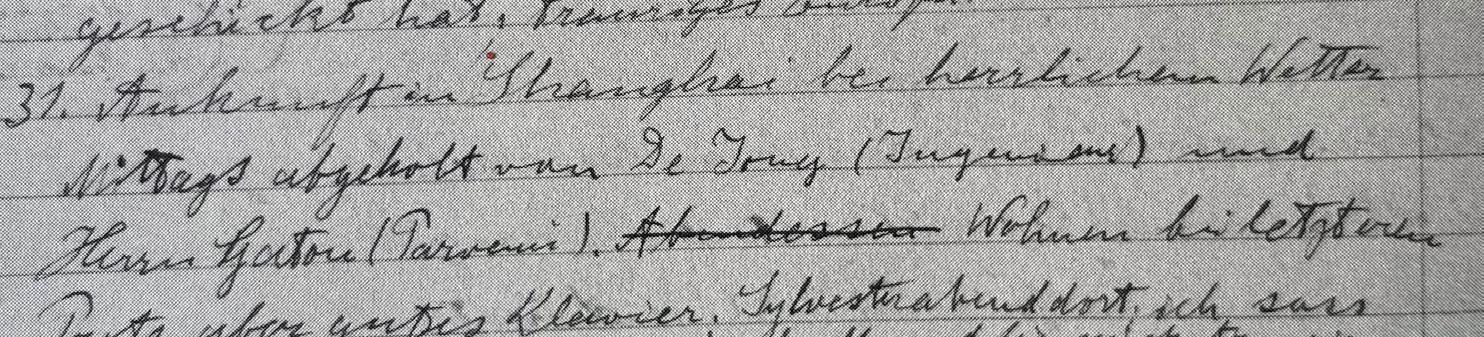 geschickt hat. Trauriges Europa.
31. Ankunft in Shanghai bei herrlichem Wetter
Mittags abgeholt von De Jong (Ingenieur) und
Herrn Gaton (Parvenü). Abendessen Wohnen bei letzteren
aber gutes Klavier. Sylvesterabend dort, ich sass